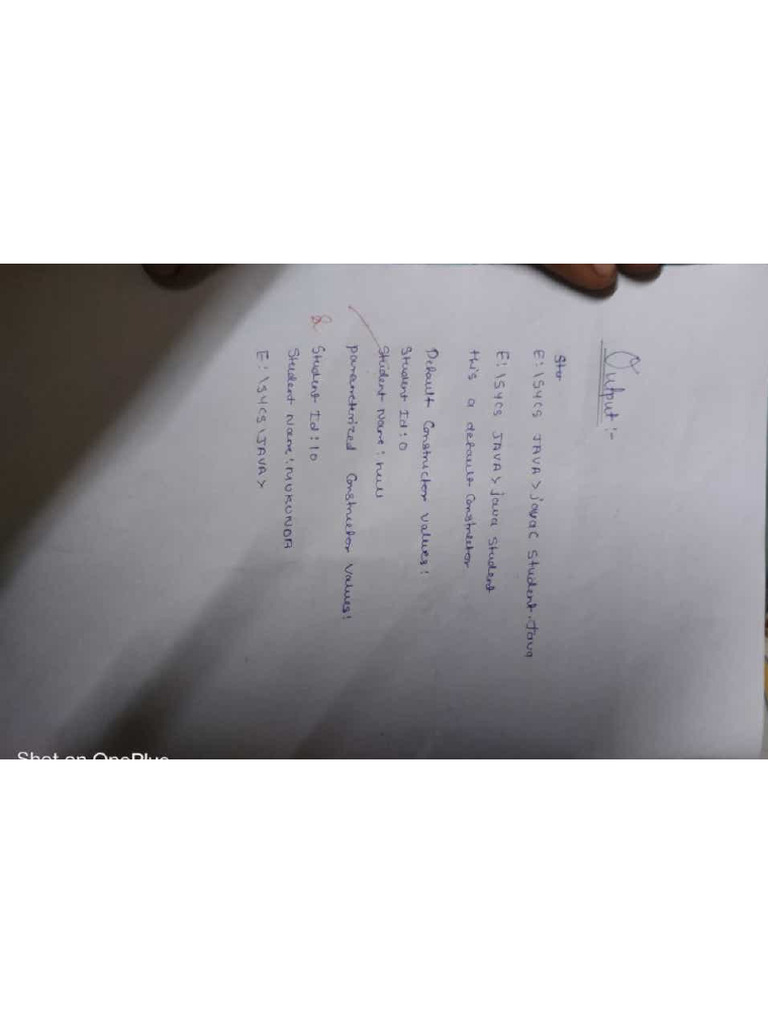 Output :-
Stor
E:\SYCS JAVA>javac Student.Java
E:\SYCS JAVA>java Student
this a default constructor
Default Constructor values:
Student Id:0
Student Name: null
parameterized Constructor values:
Student Id:10
Student Name:MUKUNDA
E:\SYCS\JAVA>
Shot on OnePlus